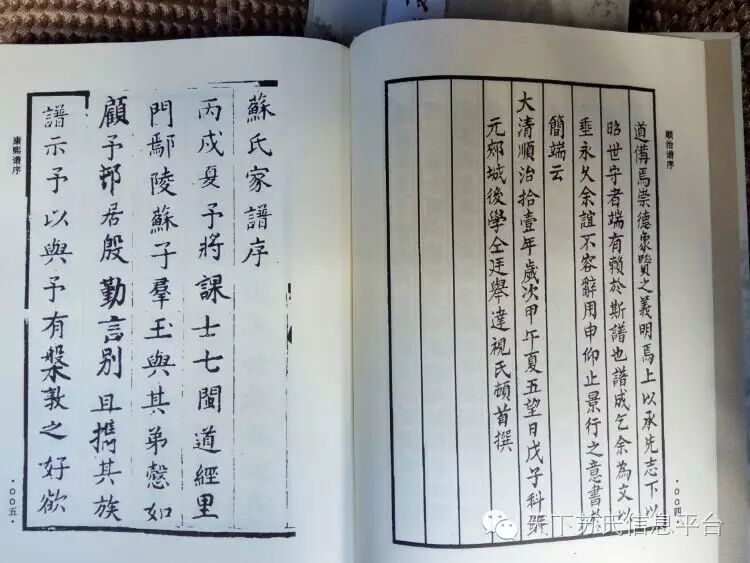 順治谱序
道備焉崇德象賢之義明焉上以承先志下以
昭世守者端有賴於斯譜也譜成乞余為文以
垂永久余誼不容辭用申仰止景行之意書於
簡端云
大清順治拾壹年歲次甲午夏五望日戊子科解
元郊城後學仝廷舉達視氏頓首撰
·〇〇四·
蘇氏家譜序
丙戌夏予將課士七閩道經里
門鄢陵蘇子羣玉與其弟愨如
顧予邨居殷勤言別且攜其族
譜示予以與予有槃敦之好欲
康熙谱序
·〇〇五·
天下苏氏信息平台